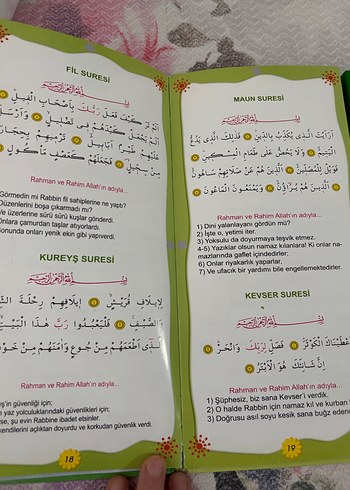 FİL SURESİ
اَلَمْ تَرَ كَيْفَ فَعَلَ رَبُّكَ بِاَصْحَابِ الْفِيلِ
اَلَمْ يَجْعَلْ كَيْدَهُمْ فِى تَضْلِيلٍ وَاَرْسَلَ
عَلَيْهِمْ طَيْرًا اَبَابِيلَ تَرْمِيهِمْ بِحِجَارَةٍ
مِنْ سِجِّيلٍ فَجَعَلَهُمْ كَعَصْفٍ مَأْكُولٍ
Rahman ve Rahim Allah'ın adıyla...
Görmedin mi Rabbin fil sahiplerine ne yaptı?
Düzenlerini boşa çıkarmadı mı?
Ve üzerlerine sürü sürü kuşlar gönderdi.
Onlara çamurdan taşlar atıyorlardı.
Sonunda onları yenik ekin gibi yapıverdi.
KUREYŞ SURESİ
لِاِيلَافِ قُرَيْشٍ اِيلَافِهِمْ رِحْلَةَ
وَالصَّيْفِ فَلْيَعْبُدُوا رَبَّ هٰذَا الْبَيْتِ
اَلَّذِى اَطْعَمَهُمْ مِنْ جُوعٍ وَاٰمَنَهُمْ مِنْ خَوْفٍ
Rahman ve Rahim Allah'ın adıyla...
güvenliği için;
yaz yolculuklarındaki güvenlikleri için;
şu evin Rabbine ibadet etsinler.
kendilerini açlıktan doyurdu ve korkudan güvenlik verdi.
18
MAUN SURESİ
اَرَاَيْتَ الَّذِى يُكَذِّبُ بِالدِّينِ فَذٰلِكَ الَّذِى يَدُعُّ
الْيَتِيمَ وَلَا يَحُضُّ عَلٰى طَعَامِ الْمِسْكِينِ
فَوَيْلٌ لِلْمُصَلِّينَ اَلَّذِينَ هُمْ عَنْ صَلَاتِهِمْ سَاهُونَ
اَلَّذِينَ هُمْ يُرَاؤُنَ وَيَمْنَعُونَ الْمَاعُونَ
Rahman ve Rahim Allah'ın adıyla...
1) Dini yalanlayanı gördün mü?
2) İşte o, yetimi iter.
3) Yoksulu da doyurmaya teşvik etmez.
4-5) Yazıklar olsun namaz kılanlara! Ki onlar na-
mazlarında gaflet içindedirler;
6) Onlar riyakarlık yaparlar,
7) Ve ufacık bir yardımı bile engellemektedirler.
KEVSER SURESİ
الْكَوْثَرَ فَصَلِّ لِرَبِّكَ وَانْحَرْ
اِنَّ شَانِئَكَ هُوَ الْاَبْتَرُ
Rahman ve Rahim Allah'ın adıyla...
1) Şüphesiz, biz sana Kevser'i verdik.
2) O halde Rabbin için namaz kıl ve kurban
3) Doğrusu asıl soyu kesik sana buğz eden
19